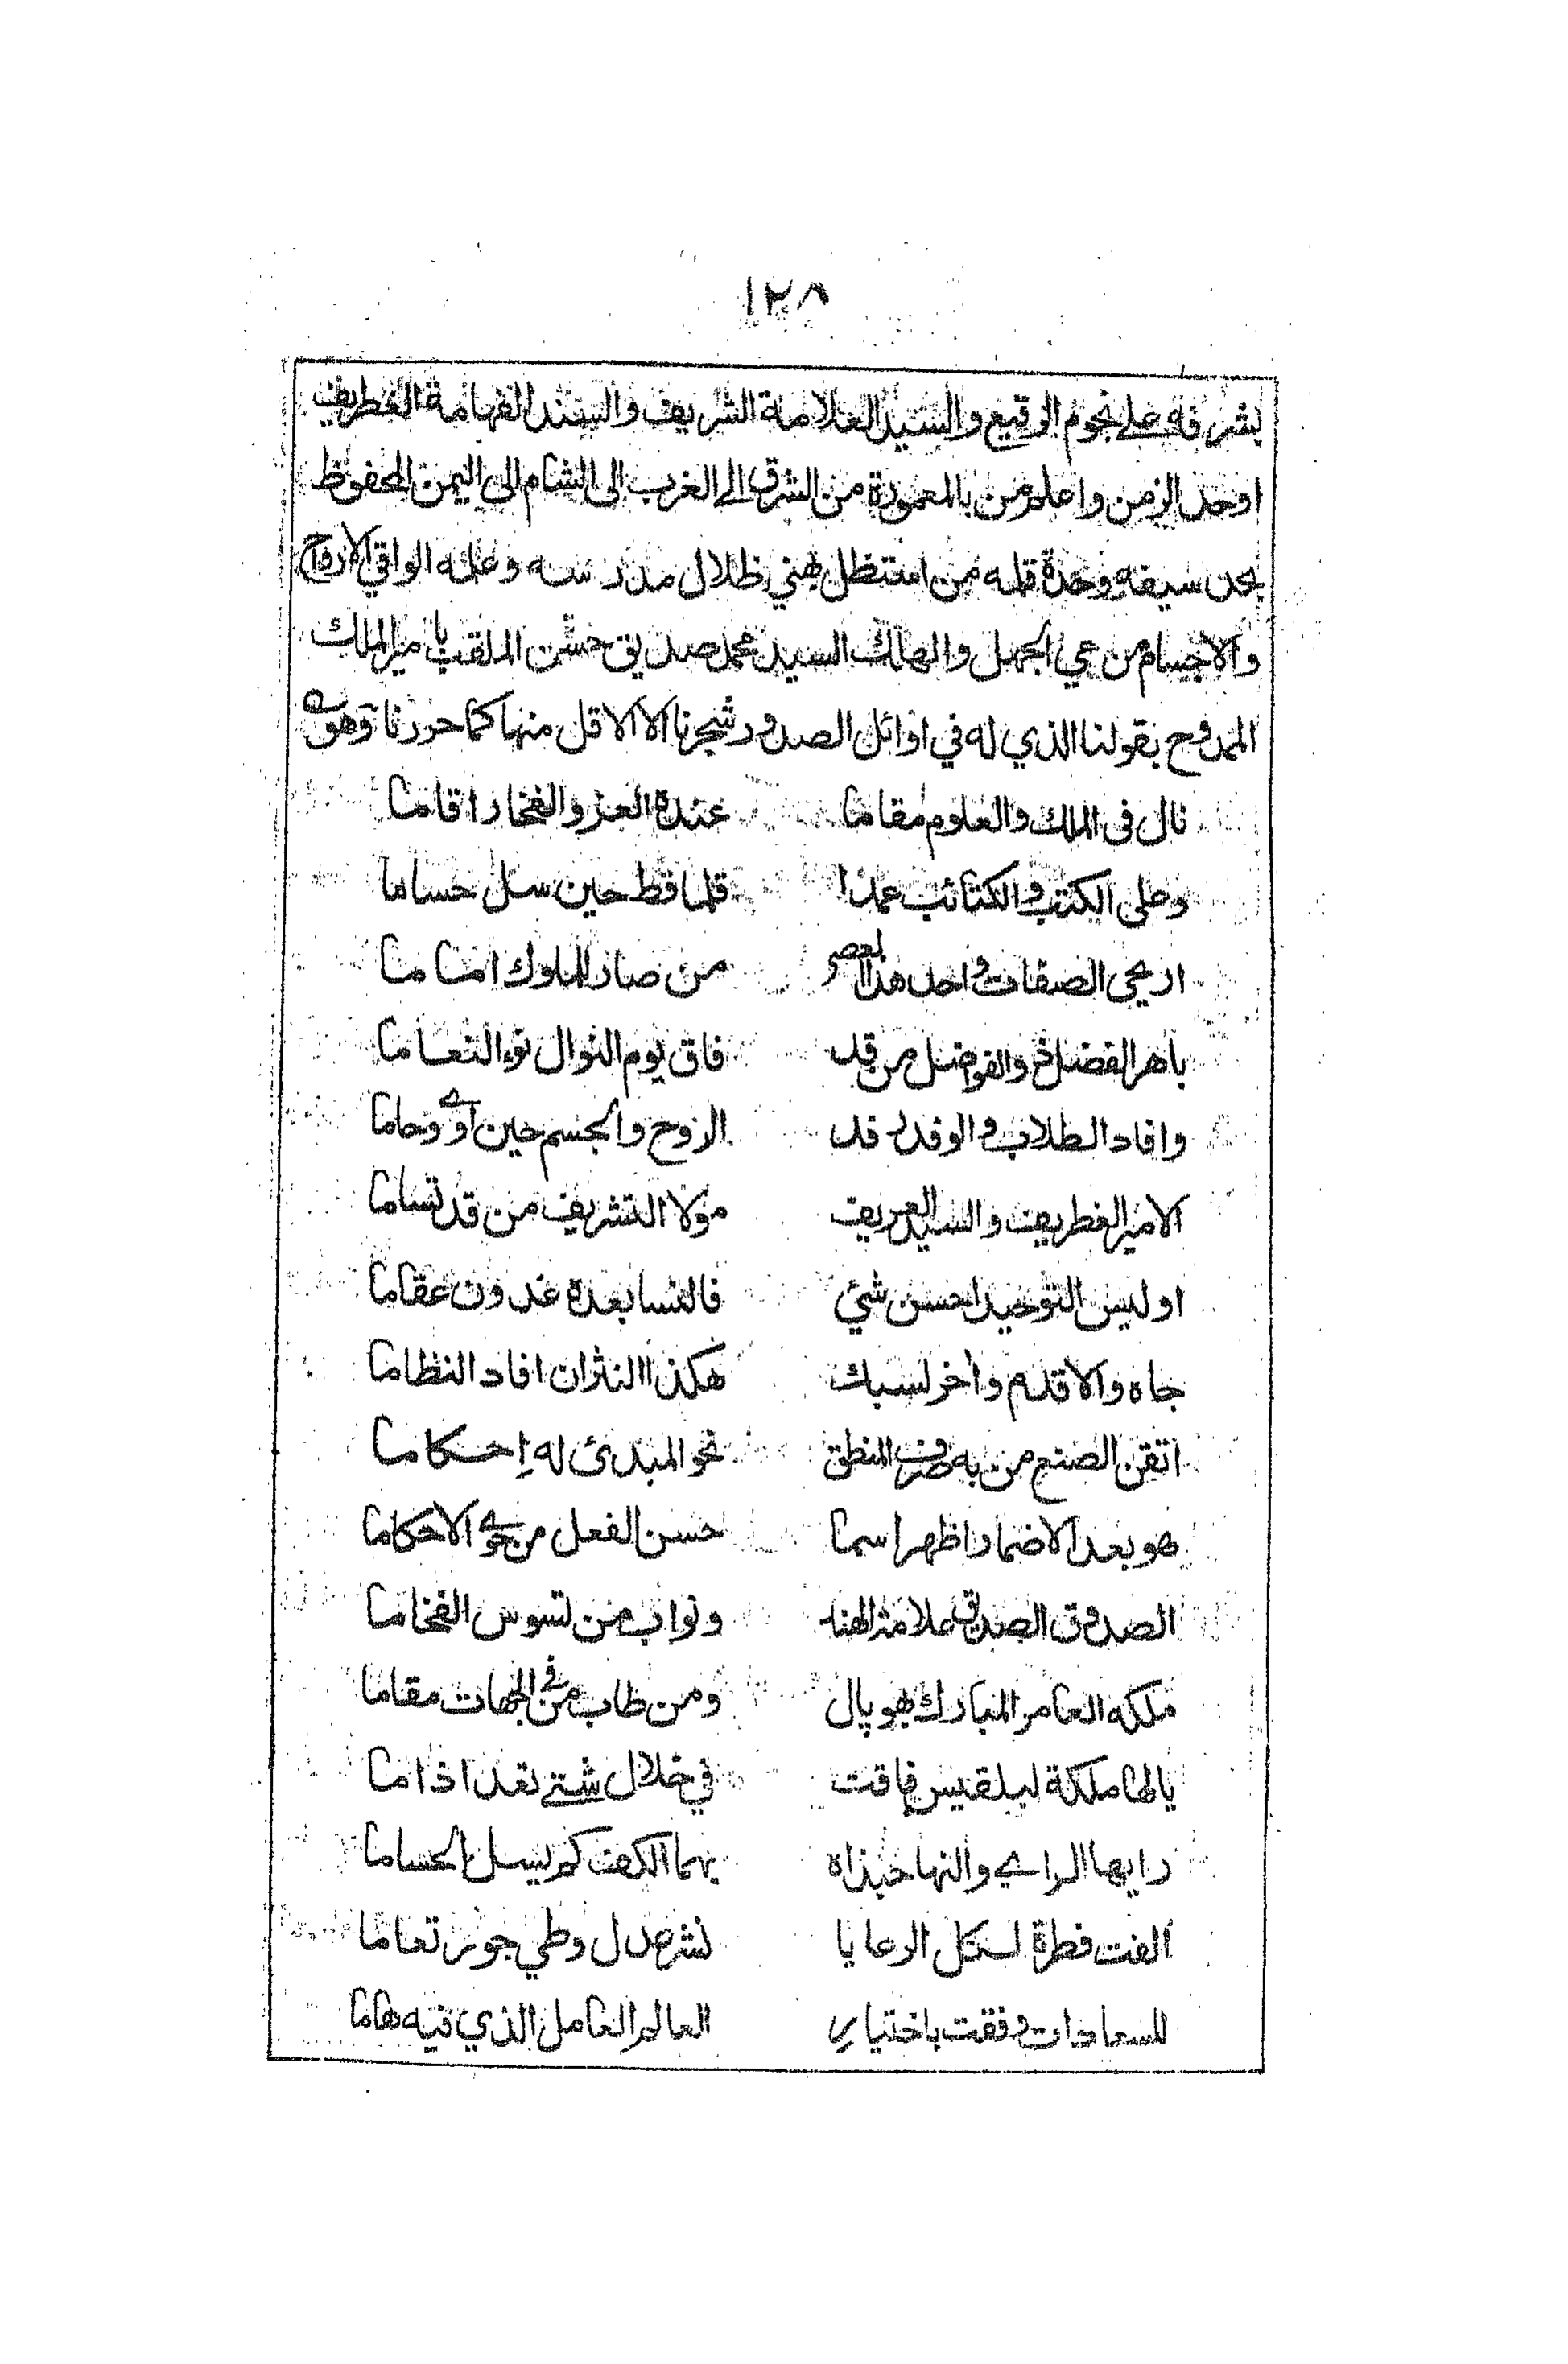 ١٢٨
بشرفه على نجوم الرقيع والسيد العلامة الشريف والسند الفهامة الغطريف
اوحد الزمن واعلم من بالمعمورة من الشرق الى الغرب الى الشام الى اليمن المحفوظ
بحد سيفه وحدة قلمه من استظل بهني ظلال مدرسه وعلمه الواقي الارواح
والاجسام من عي الجهل والهلك السيد محمد صديق حسن الملقب بامير الملك
الممدوح بقولنا الذي له في اوائل الصدور شجرنا الا الاقل منها كما حررنا وهو
نال فى الملك والعلوم مقاما عنده العز والفخار اقاما
وعلى الكتب والكتائب عمدا قلما قط حين سل حساما
اريحي الصفات واحد هذا العصر من صار للملوك اماما
باهر الفضل والفواضل من قد فاق يوم النوال نوء النعاما
وافاد الطلاب والوفد رفد الروح والجسم حين آوى وحاما
الامير الغطريف والسيد العريف مولا التشريف من قد تساما
او ليس التوحيد احسن شئ فالنسا بعده غدون عقاما
جاه والاقدم وأخر لسبك هكذا النثر ان افاد النظاما
اتقن الصنع من به صرف المنطق نحو المبدئ له إحكاما
هو بعد الاضمار اظهر اسما حسن الفعل من حوى الاحكاما
الصدوق الصديق علامة الهنا ونواب من تسوس الفخاما
ملكه العامر المبارك بهوپال ومن طاب من فى الجهات مقاما
يالها ملكة لبلقيس فاقت في خلال شتى تعد اذا ما
رايها الراي والنها حبذاه بهما الكف كم يسل الحساما
ألفت فطرة لكل الرعايا نشر عدل وطي جور تعاما
للسعادات وفقت باختيار العالم العامل الذي فيه هاما